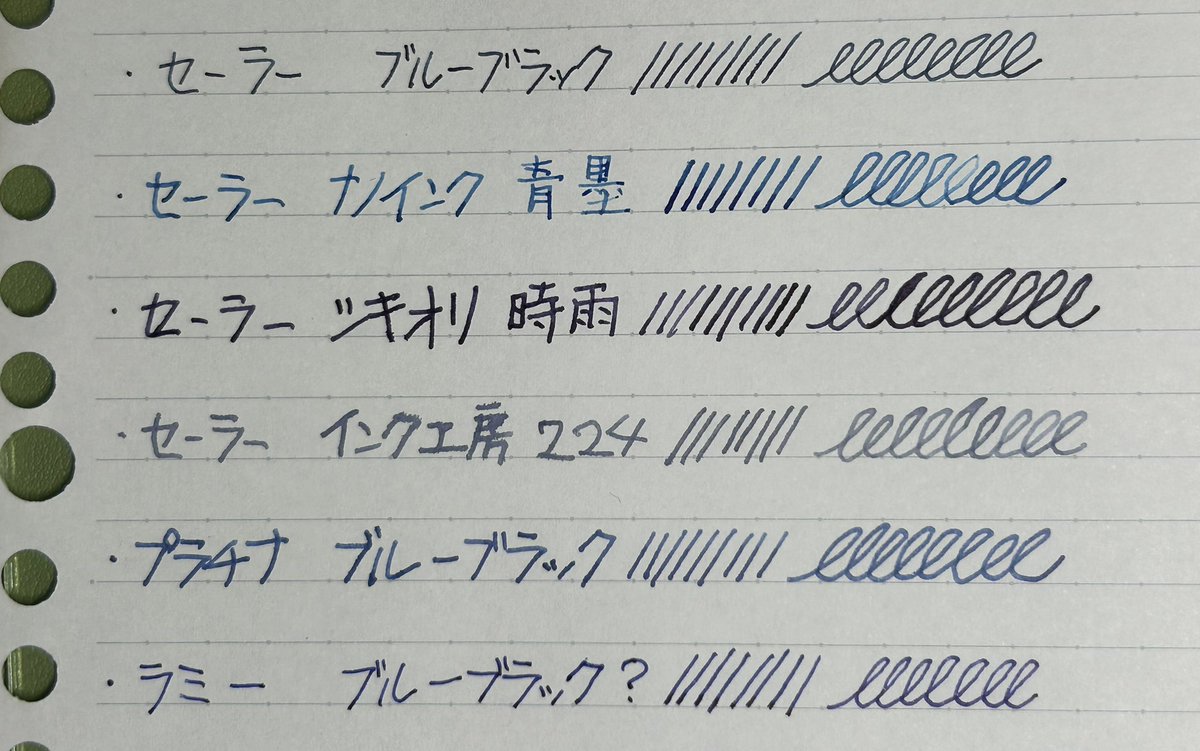 ・セーラー ブルーブラック
・セーラー ナノインク 青墨
・セーラー ツキオリ 時雨
・セーラー インク工房 224
・プラチナ ブルーブラック
・ラミー ブルーブラック?